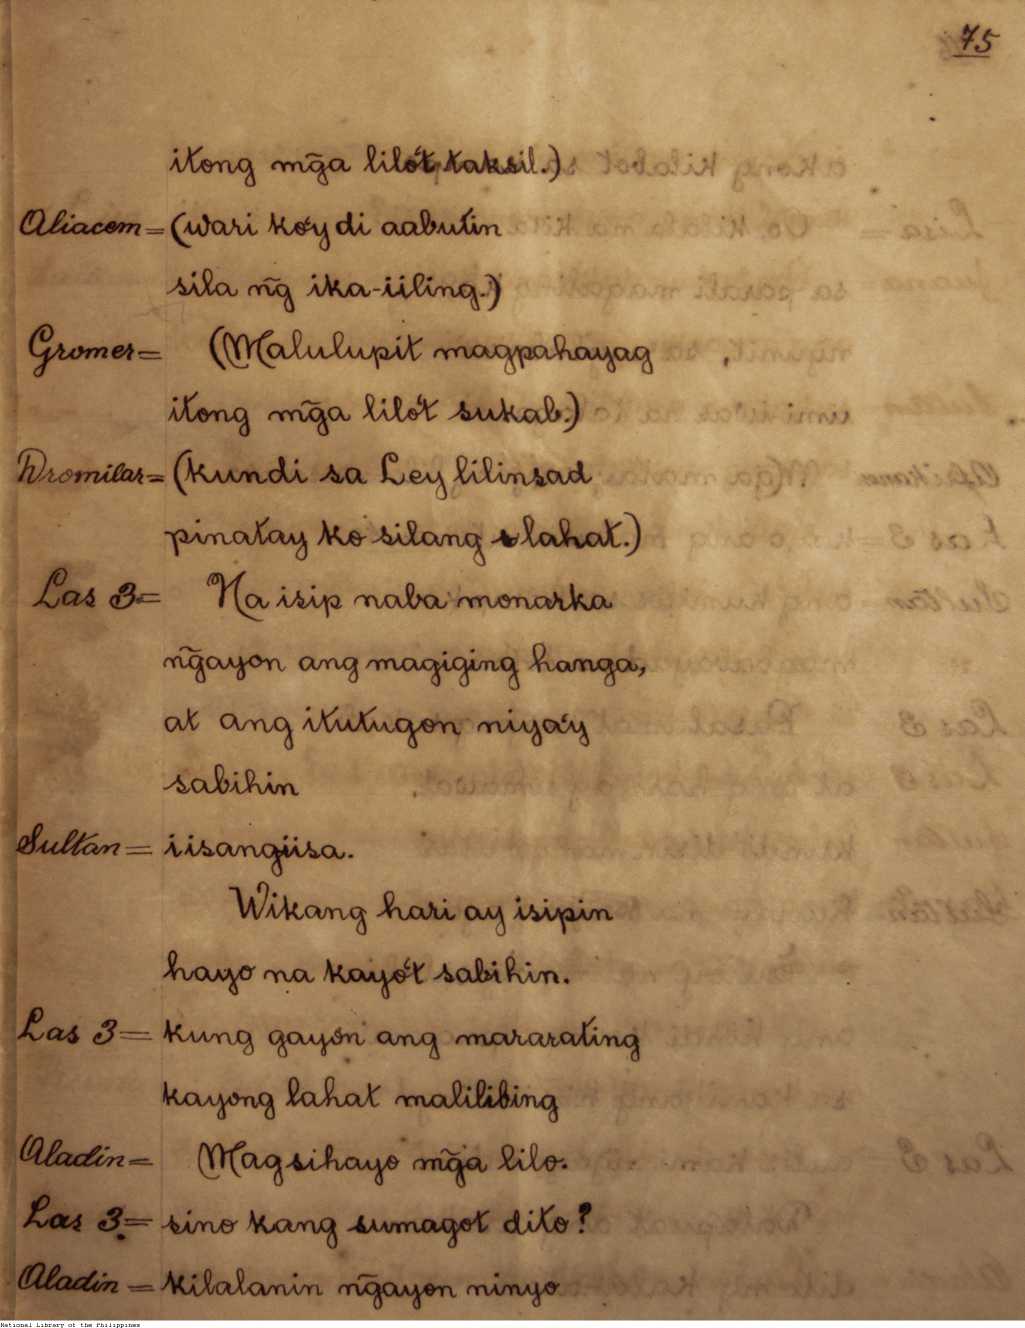 75
itong mg̃a lilo't taksil.)
Aliacem= (wari ko'y di aabutin
sila ng̃ ika-iiling.)
Gromer= (Malulupit magpahayag
itong mg̃a lilo't sukab.)
Dromilar= (kundi sa Ley lilinsad
pinatay ko silang lahat.)
Las 3= Na isip naba monarka
ng̃ayon ang magiging hanga,
at ang itutugon niya'y
sabihin
Sultan= iisangiisa.
Wikang hari ay isipin
hayo na kayo't sabihin.
Las 3= kung gayon ang mararating
kayong lahat malilibing
Aladin= Magsihayo mg̃a lilo.
Las 3= sino kang sumagot dito?
Aladin= kilalanin ng̃ayon ninyo
National Library of the Philippines